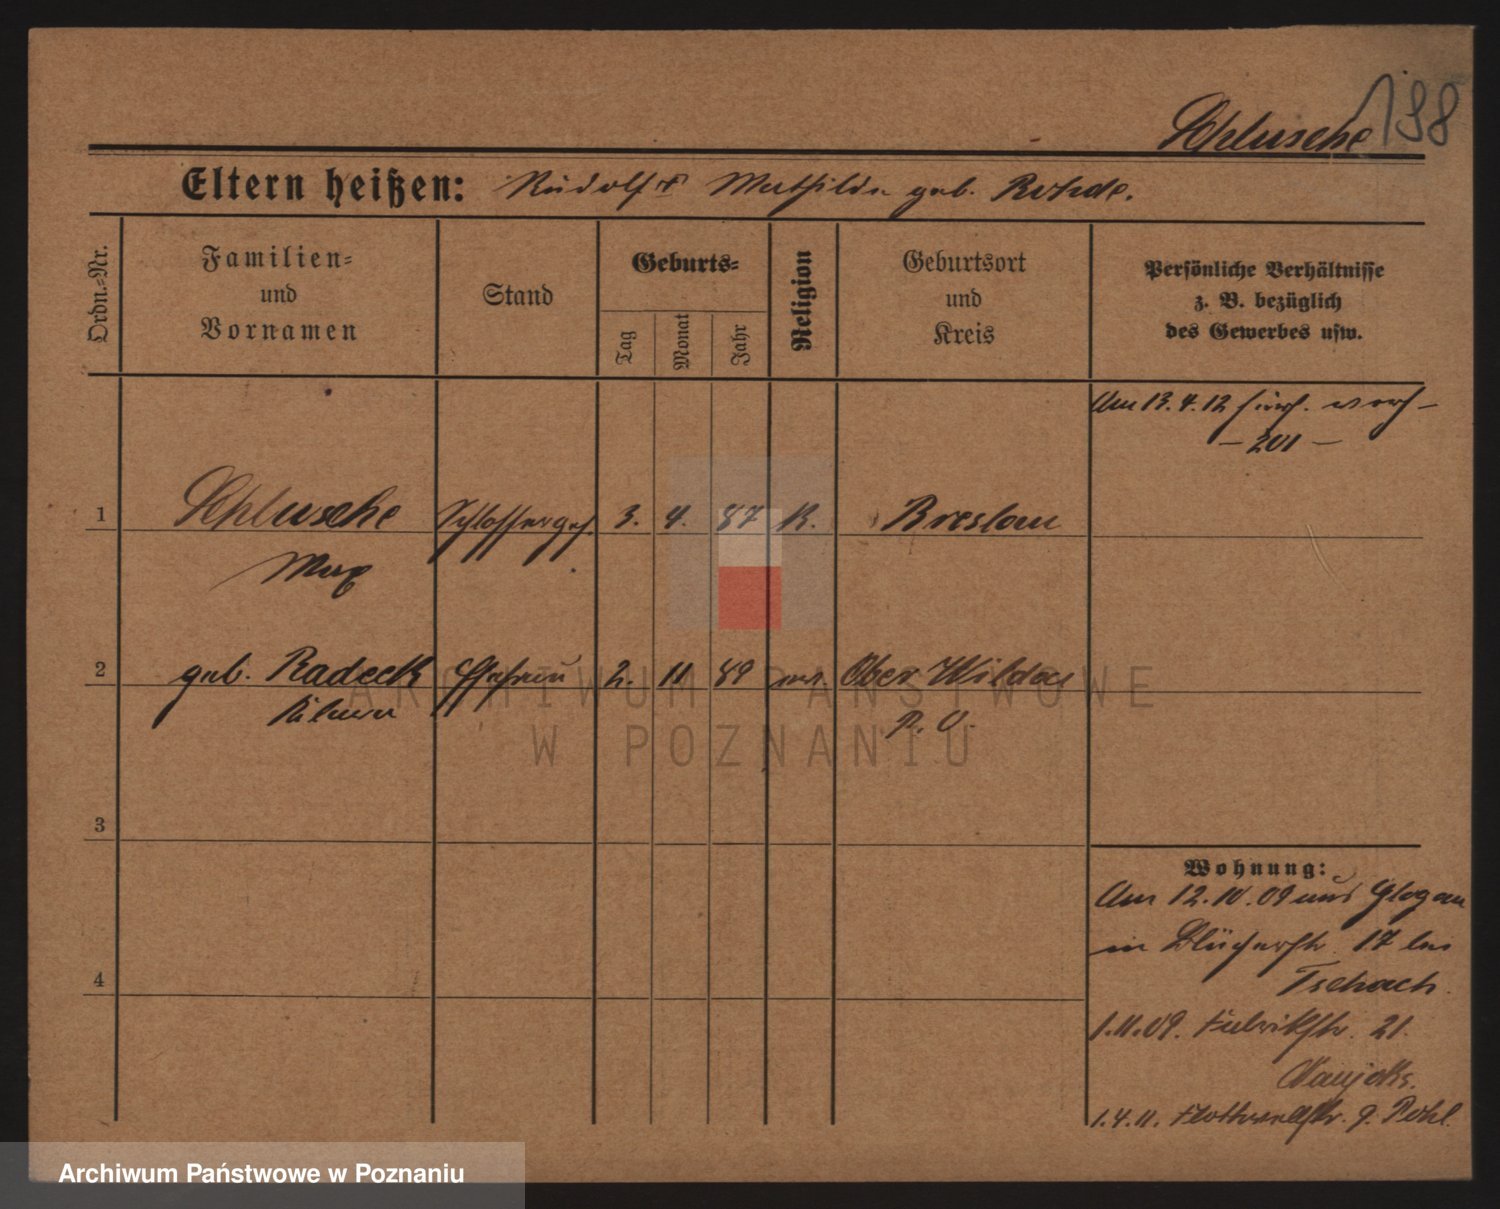 Schlusche 138
Eltern heißen: Rudolf Mathilde geb. Rohde.
Ordn.-Nr.
Familien-
und
Vornamen
Stand
Geburts-
Tag
Monat
Jahr
Religion
Geburtsort
und
Kreis
Persönliche Verhältnisse
z. B. bezüglich
des Gewerbes usw.
Am 13.4.12
- 201 -
1 Schlusche Schlosserges. 3. 4. 87 K. Breslau
Max
2 geb. Radeck Ehefrau 2. 11 89 Ober Wilda
P. O.
3
4
Wohnung:
Am 12.10.09 aus Glogau
in Blücherstr. 17 bei
Tschach.
1.11.09. Fabrikstr. 21.
1.4.11. Flottwellstr. 9. Pohl.
ARCHIWUM PAŃSTWOWE
W POZNANIU
Archiwum Państwowe w Poznaniu